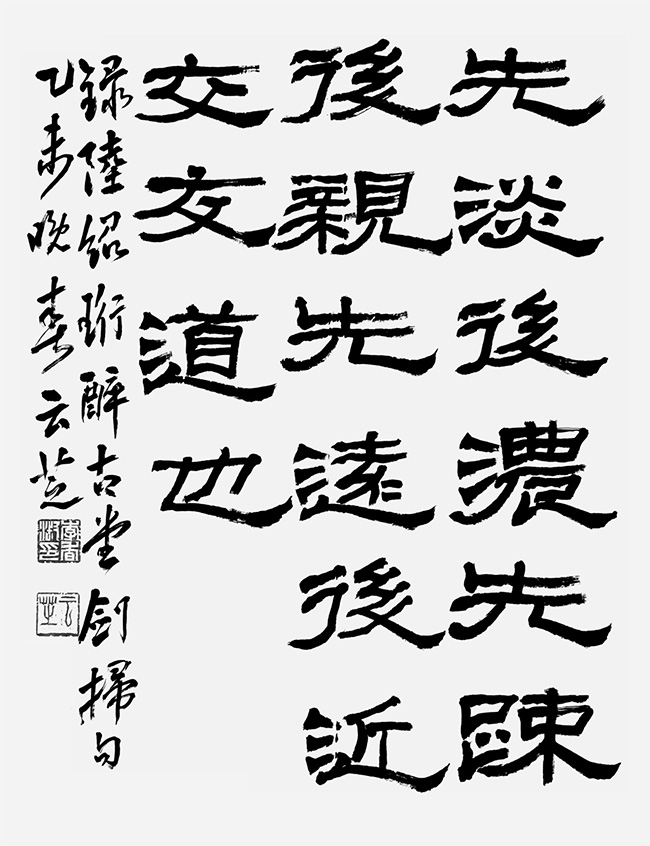 先淡後濃先踈
後親先遠後近
交友道也
録陸紹珩醉古堂劍掃句
乙未晚春云芝